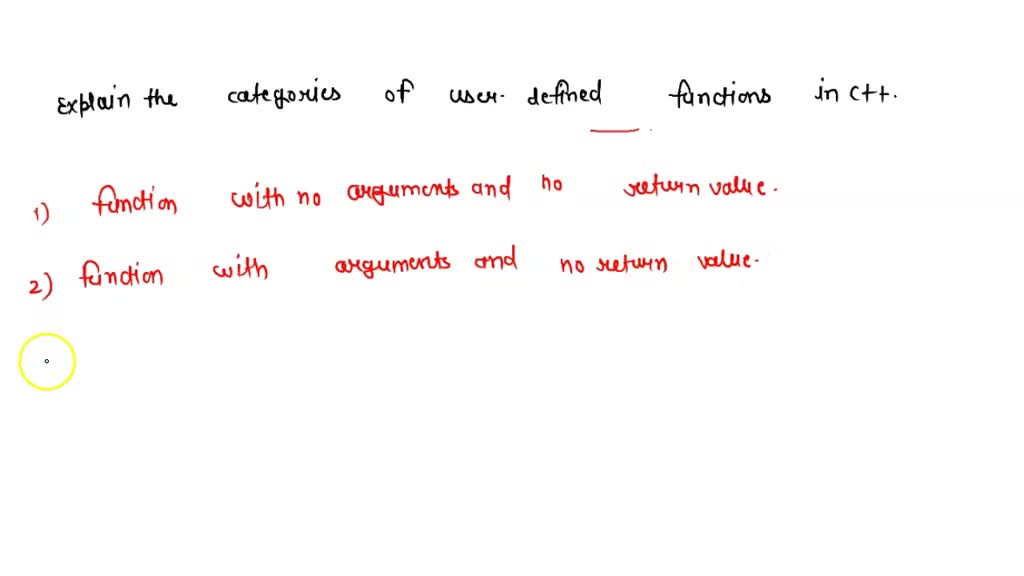 Explain the categories of user-defined functions in C++.
1) function with no arguments and no return value.
2) function with arguments and no return value.